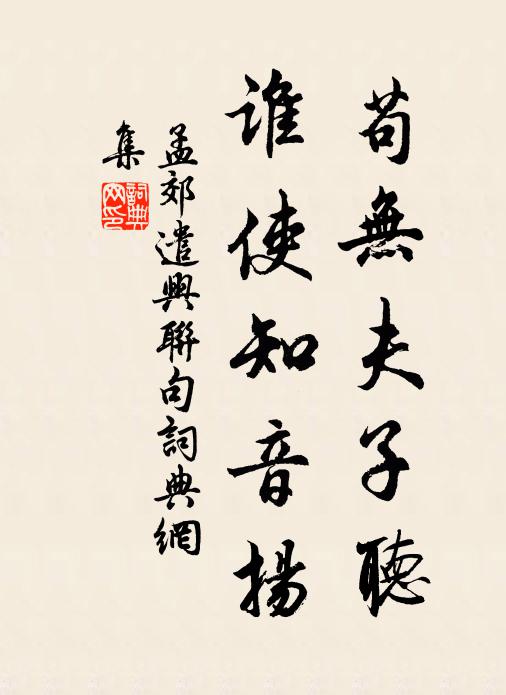 苟無夫子聽
谁使知音揚
孟郊遣興聯句詞典網
集
詞典
网印